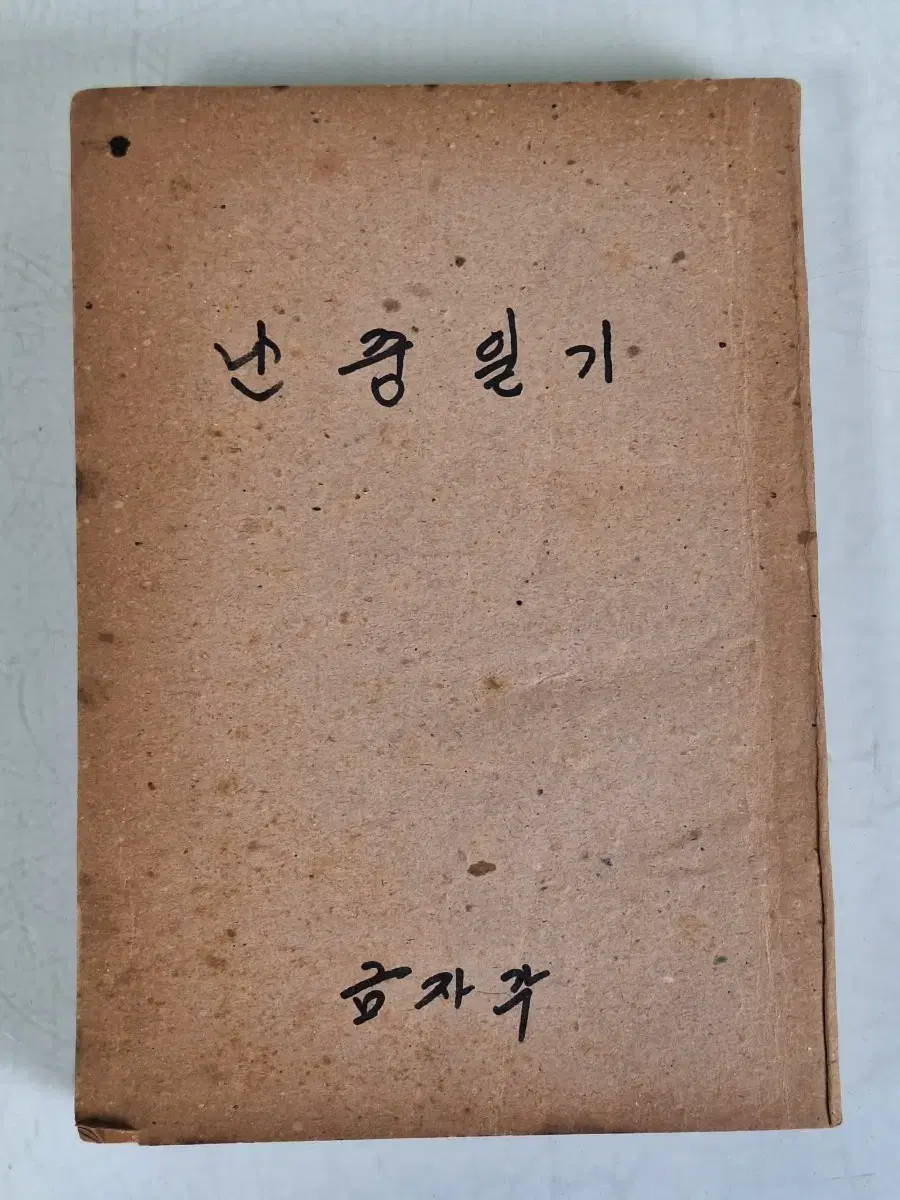 난중일기
금자각